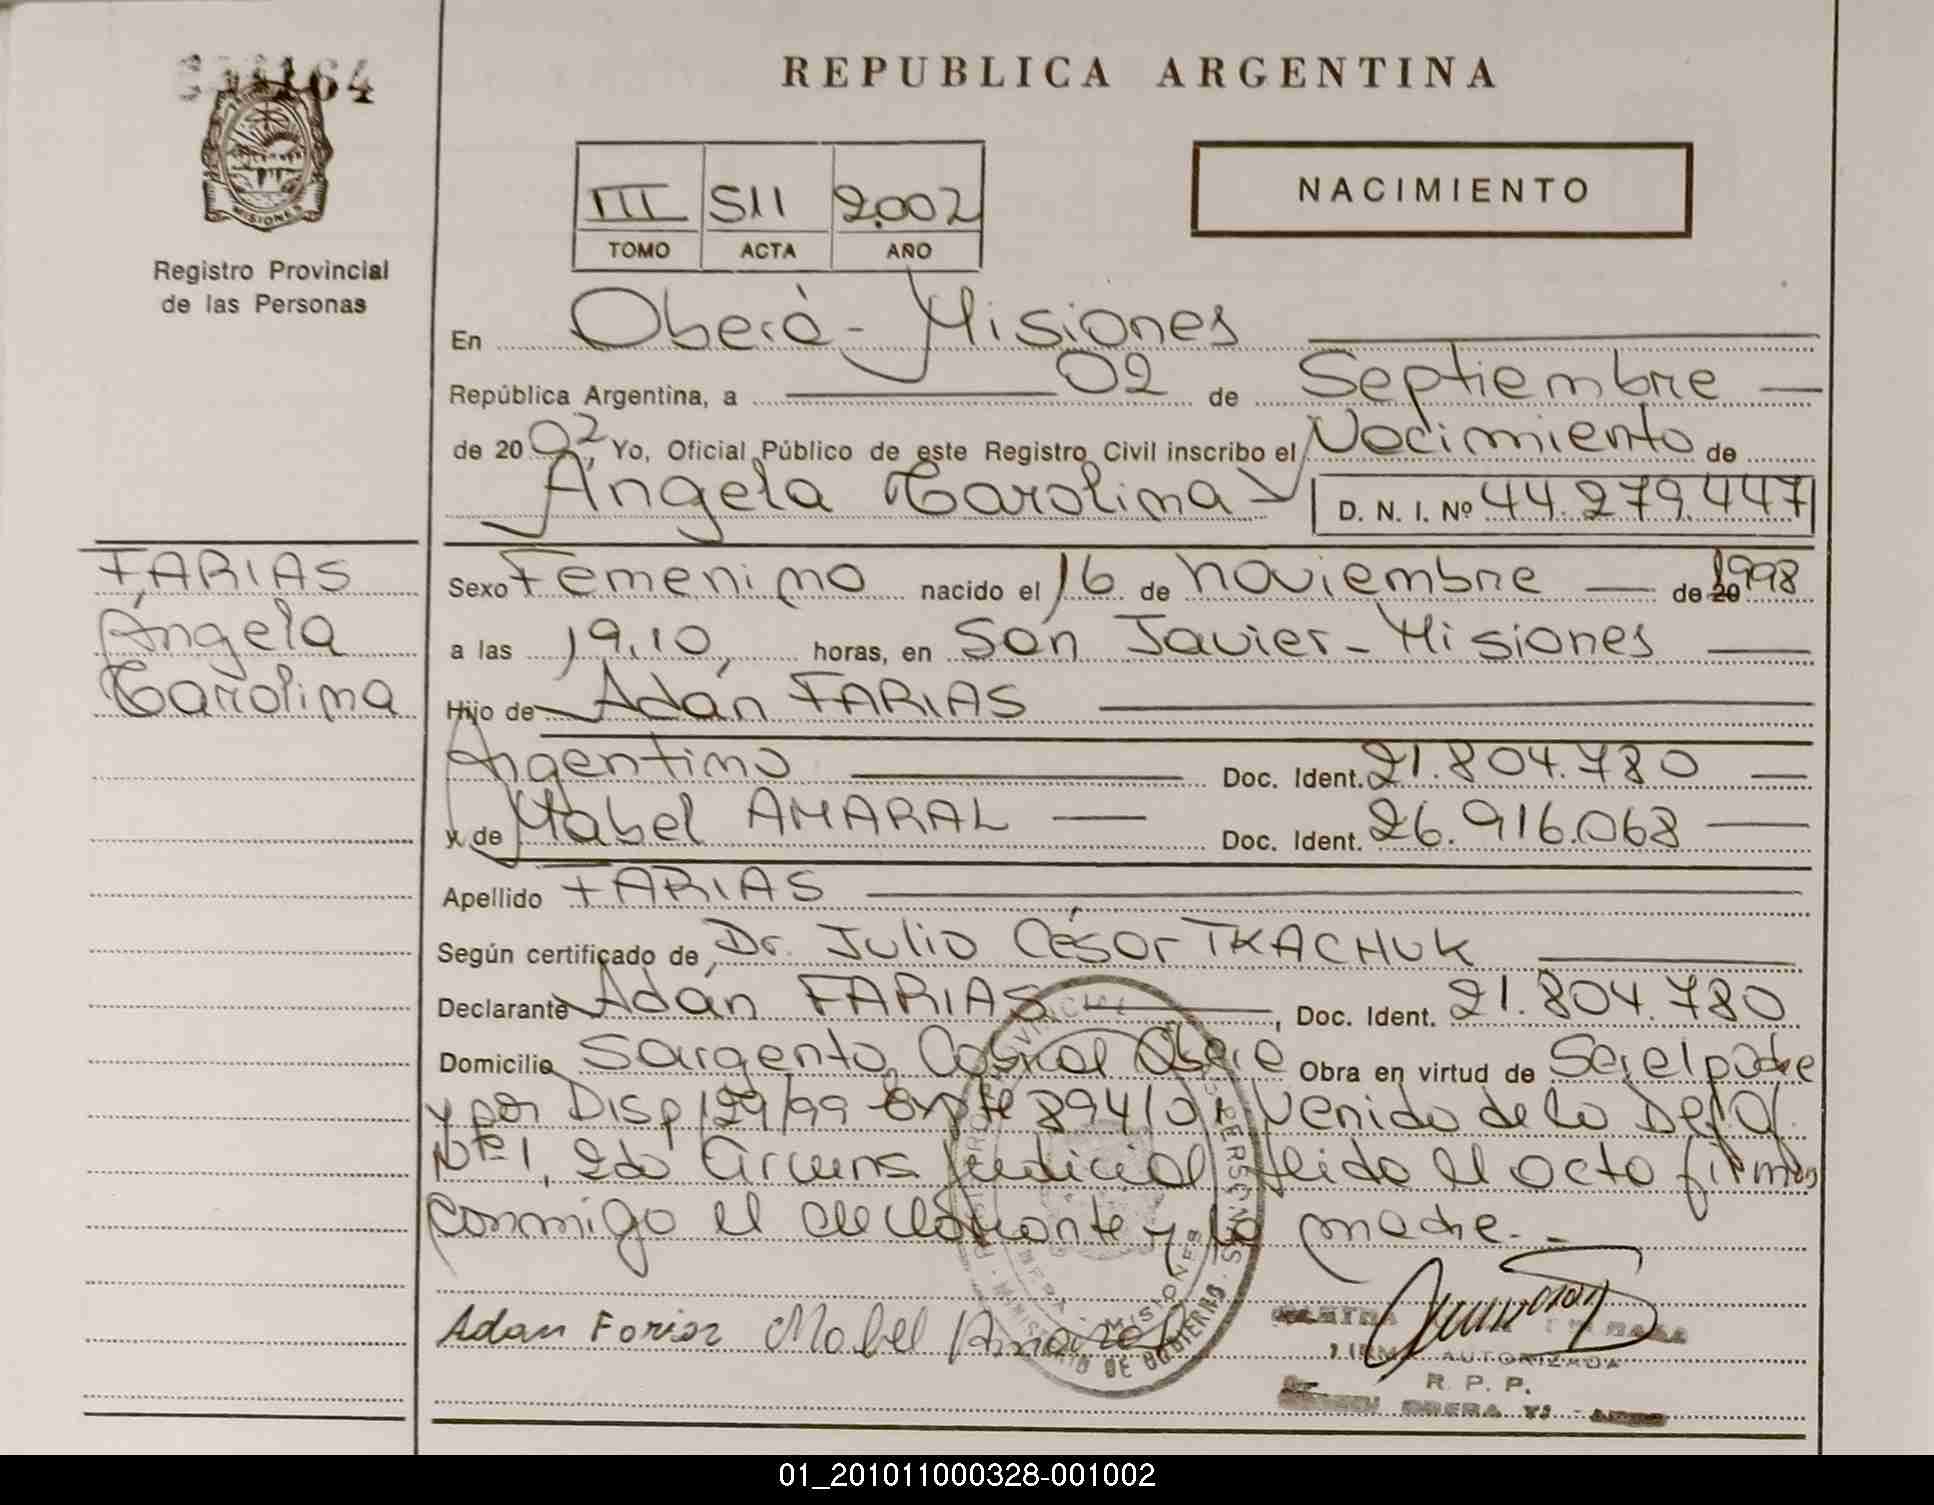 164
MISIONES
Registro Provincial
de las Personas
REPUBLICA ARGENTINA
III 511 2.002
TOMO ACTA AÑO
NACIMIENTO
En Oberá - Misiones
República Argentina, a 02 de Septiembre
de 2002, Yo, Oficial Público de este Registro Civil inscribo el Nacimiento de
Angela Carolina D. N. I. Nº 44.279.447
FARIAS
Angela
Carolina
Sexo Femenino nacido el 16 de noviembre de 20 1998
a las 19,10, horas, en San Javier - Misiones
Hijo de Adán FARIAS
Argentino Doc. Ident. 21.804.780
y de Mabel AMARAL Doc. Ident. 26.916.068
Apellido FARIAS
Según certificado de Dr. Julio César TKACHUK
Declarante Adán FARIAS, Doc. Ident. 21.804.780
Domicilio Sargento Cabral Oberá Obra en virtud de Ser el padre
y por Disp 129/99 Expte 894/01 venido de la Def Of.
Nº 1, 2da Circuns Judicial leida el acta firman
conmigo el declarante y la madre.-
Adan Farias Mabel Amaral
FIRMA AUTORIZADA
R. P. P.
OBERA
MINISTERIO DE GOBIERNO
PERSONAS
MISIONES
01_201011000328-001002